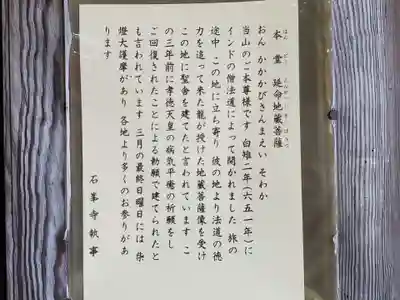 本堂 延命地蔵菩薩
おん かかかびさんまえい そわか
当山のご本尊様です 白雉二年（六五一年）に
インドの僧法道によって開かれました 旅の
途中 この地に立ち寄り 彼の地より法道の徳
力を追って来た龍が授けた地蔵菩薩像を受け
この地に聖舎を建てたと言われています こ
の三年前に孝徳天皇の病気平癒の祈願をし
ご回復されたことによる勅願で建てられたと
も言われています 三月の最終日曜日には柴
燈大護摩があり 各地より多くのお参りがあ
ります
石峯寺執事